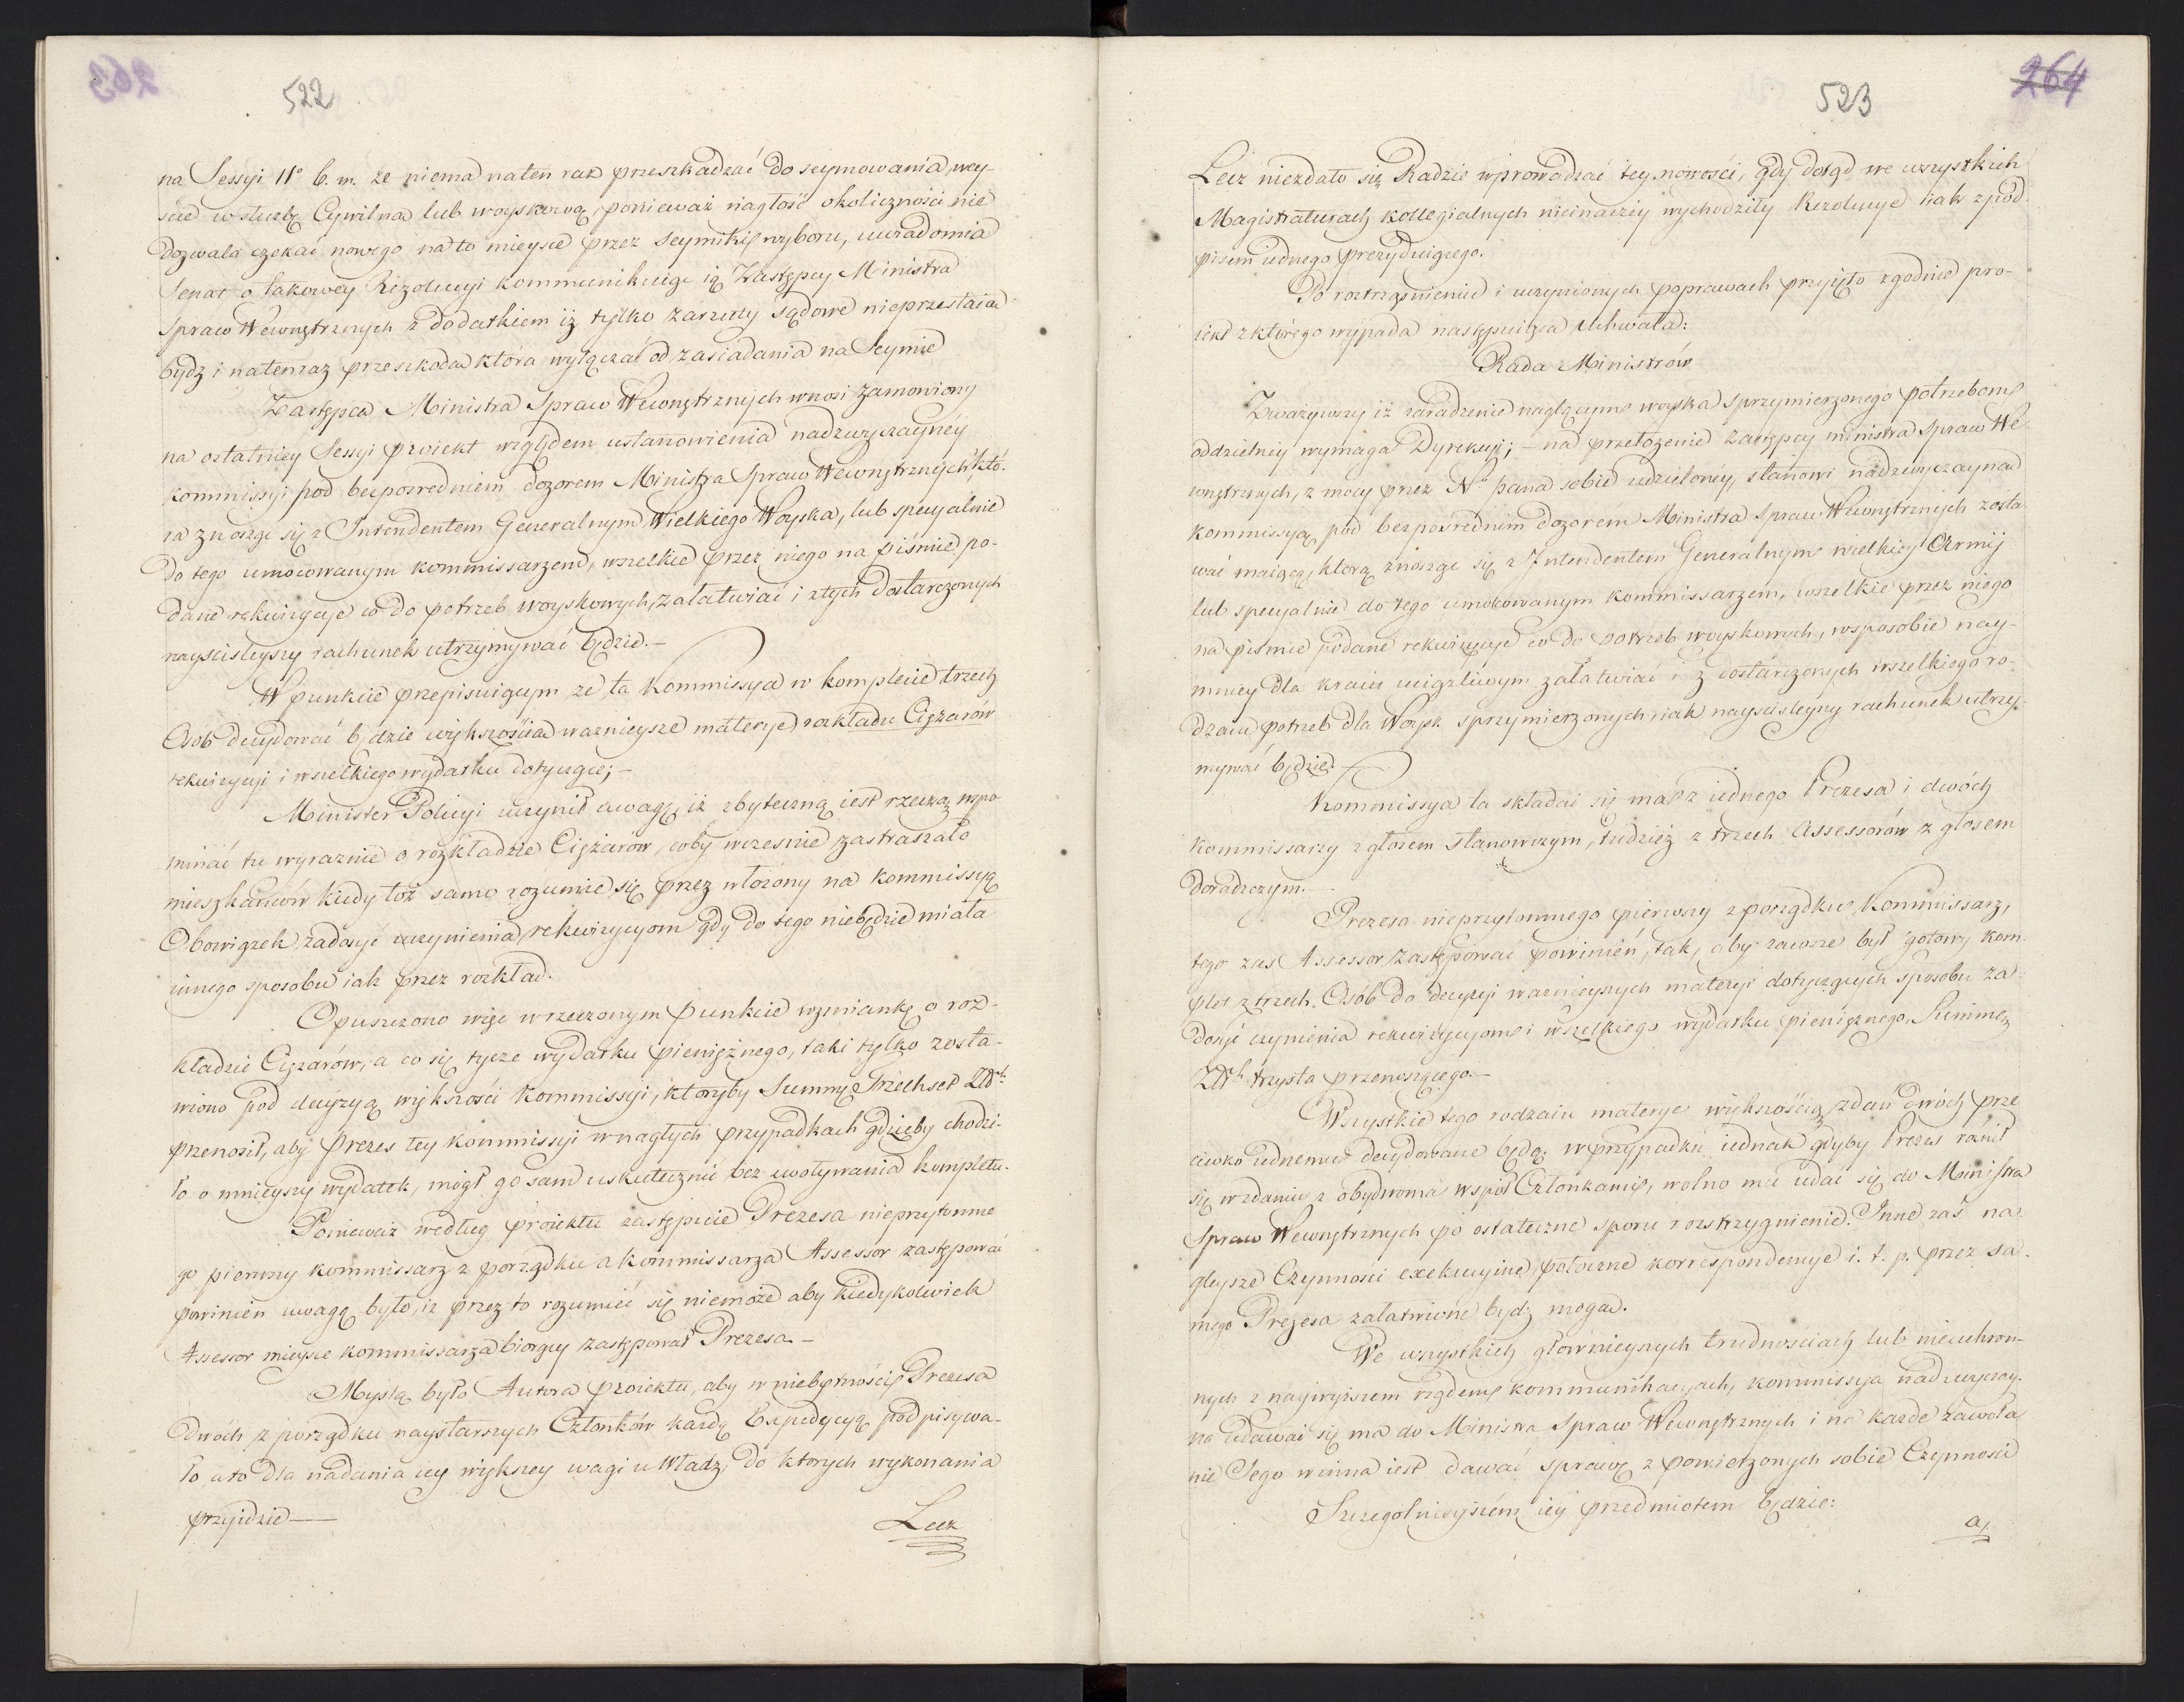 522
na Sessyi 11° b. m. że niema na ten raz przeszkadzać do seymowania, wey-
scie w służbę Cywilną lub woyskową, ponieważ nagłość okoliczności nie
dozwala czekać nowego na to mieysce przez Seymiki wyboru, uwiadomia
Senat o takowey Rezolucyi kommunikuiąc ią Zastępcy Ministra
Spraw Wewnętrznych z dodatkiem iż tylko zarzuty sądowe nieprzestaią
bydz i natenraz przeszkodą która wyłącza od zasiadania na Seymie
Zastępca Ministra Spraw Wewnętrznych wnosi zamoniony
na ostatniey Sessyi proiekt względem ustanowienia nadzwyczayney
kommissyi pod bezposredniem dozorem Ministra Spraw Wewnętrznych, któ-
ra znosząc się z Intendentem Generalnym Wielkiego Woyska, lub specyalnie
do tego umocowanym kommissarzem, wszelkie przez niego na piśmie po-
dane rekwizycye co do potrzeb woyskowych, załatwiać i z tych dostarczonych
nayscisleyszy rachunek utrzymywać będzie.—
W punkcie przepisuiącym że ta Kommissya w komplecie trzech
Osób decydować będzie większością ważnieysze materye rozkładu Ciężarów
rekwizycyi i wszelkiego wydatku dotyczące;—
Minister Policyi uczynił uwagę, iż zbyteczną iest rzeczą wspo
minać tu wyraznie o rozkładzie Ciężarów, coby wczesnie zastraszało
mieszkańców kiedy toż samo rozumie się przez włożony na kommissyą
Obowiązek zadosyć uczynienia rekwizycyom gdy do tego niebędzie miała
innego sposobu iak przez rozkład.
Opuszczono więc w rzeczonym Punkcie wzmiankę o roz-
kładzie Ciężarów, a co się tycze wydatku pieniężnego, taki tylko zosta-
wiono pod decyzyą większości Kommissyi, któryby Summę Trzechset Złch
przenosił, aby Prezes tey kommissyi w nagłych przypadkach gdzieby chodzi-
ło o mnieyszy wydatek, mógł go sam uskutecznić bez zwoływania kompletu.
Ponieważ według proiektu zastępuie Prezesa nieprzytomne
go pierwszy kommissarz z porządku a kommissarza Assessor zastępować
powinien uwagą było, iż przez to rozumieć się niemoże aby kiedykolwiek
Assessor mieysce kommissarza biorący zastępował Prezesa.—
Myślą było Autora proiektu, aby w niebytności Prezesa
dwóch z porządku naystarszych Członków każdą Expedycyą podpisywa-
ło a to dla nadania iey większey wagi u Władz, do których wykonania
przyidzie—
Lecz
523
264
Lecz niezdało się Radzie wprowadzać tey nowości, gdy dotąd we wszystkich
Magistraturach kollegialnych nieinaczey wychodziły Rezolucye iak z pod-
pisem iednego prezyduiącego.
Po roztrząsnieniu i uczynionych poprawach przyięto zgodnie pro-
iekt z którego wypada następuiąca Uchwała:
Rada Ministrów
Zważywszy iż zaradzenie naglącym woyska sprzymierzonego potrzebom
oddzielney wymaga Dyrekcyi;— na przełożenie Zastępcy ministra Spraw We
wnętrznych, z mocy przez Nº Pana sobie udzieloney, stanowi nadzwyczayną
kommissyą pod bezpośrednim dozorem Ministra Spraw Wewnętrznych zosta-
wać maiącą, która znosząc się z Intendentem Generalnym wielkiey Armij
lub specyalnie do tego umocowanym kommissarzem, wszelkie przez niego
na pismie podane rekwizycye co do potrzeb woyskowych, w sposobie nay-
mniey dla kraiu uciążliwym załatwiać i z dostarczonych wszelkiego ro-
dzaiu potrzeb dla Woysk sprzymierzonych, iak nayscisleyszy rachunek utrzy-
mywać będzie.—
Kommissya ta składać się ma z iednego Prezesa i dwóch
Kommissarzy z głosem stanowczym, tudzież z trzech Assessorów z głosem
doradczym.—
Prezesa nieprzytomnego pierwszy z porządku Kommissarz,
tego zas Assessor zastępować powinien, tak, aby zawsze był gotowy kom-
plet z trzech Osób do decyzyi ważnieyszych materyi dotyczących sposobu za
dosyć czynienia rekwizycyom i wszelkiego wydatku pieniężnego, Summę
Złch trzysta przenoszącego.—
Wszystkie tego rodzaiu materye większością zdań dwóch prze
ciwko iednemu decydowane będą; w przypadku iednak gdyby Prezes różnił
się w zdaniu z obydwoma współ Członkami, wolno mu udać się do Ministra
Spraw Wewnętrznych po ostateczne sporu rozstrzygnienie. Inne zaś na-
gleysze Czynności exekucyine, potoczne korrespondencye i. t. p. przez sa-
mego Prezesa załatwione bydź mogą.
We wszystkich głównieyszych trudnościach lub nieuchron-
nych z naywyższem rządem kommunikacyach, kommissya nadzwyczay-
na udawać się ma do Ministra Spraw Wewnętrznych i na każde zawoła
nie Jego winna iest dawać sprawę z powierzonych sobie Czynności
Szczegolnieyszém iey przedmiotem będzie:
a,